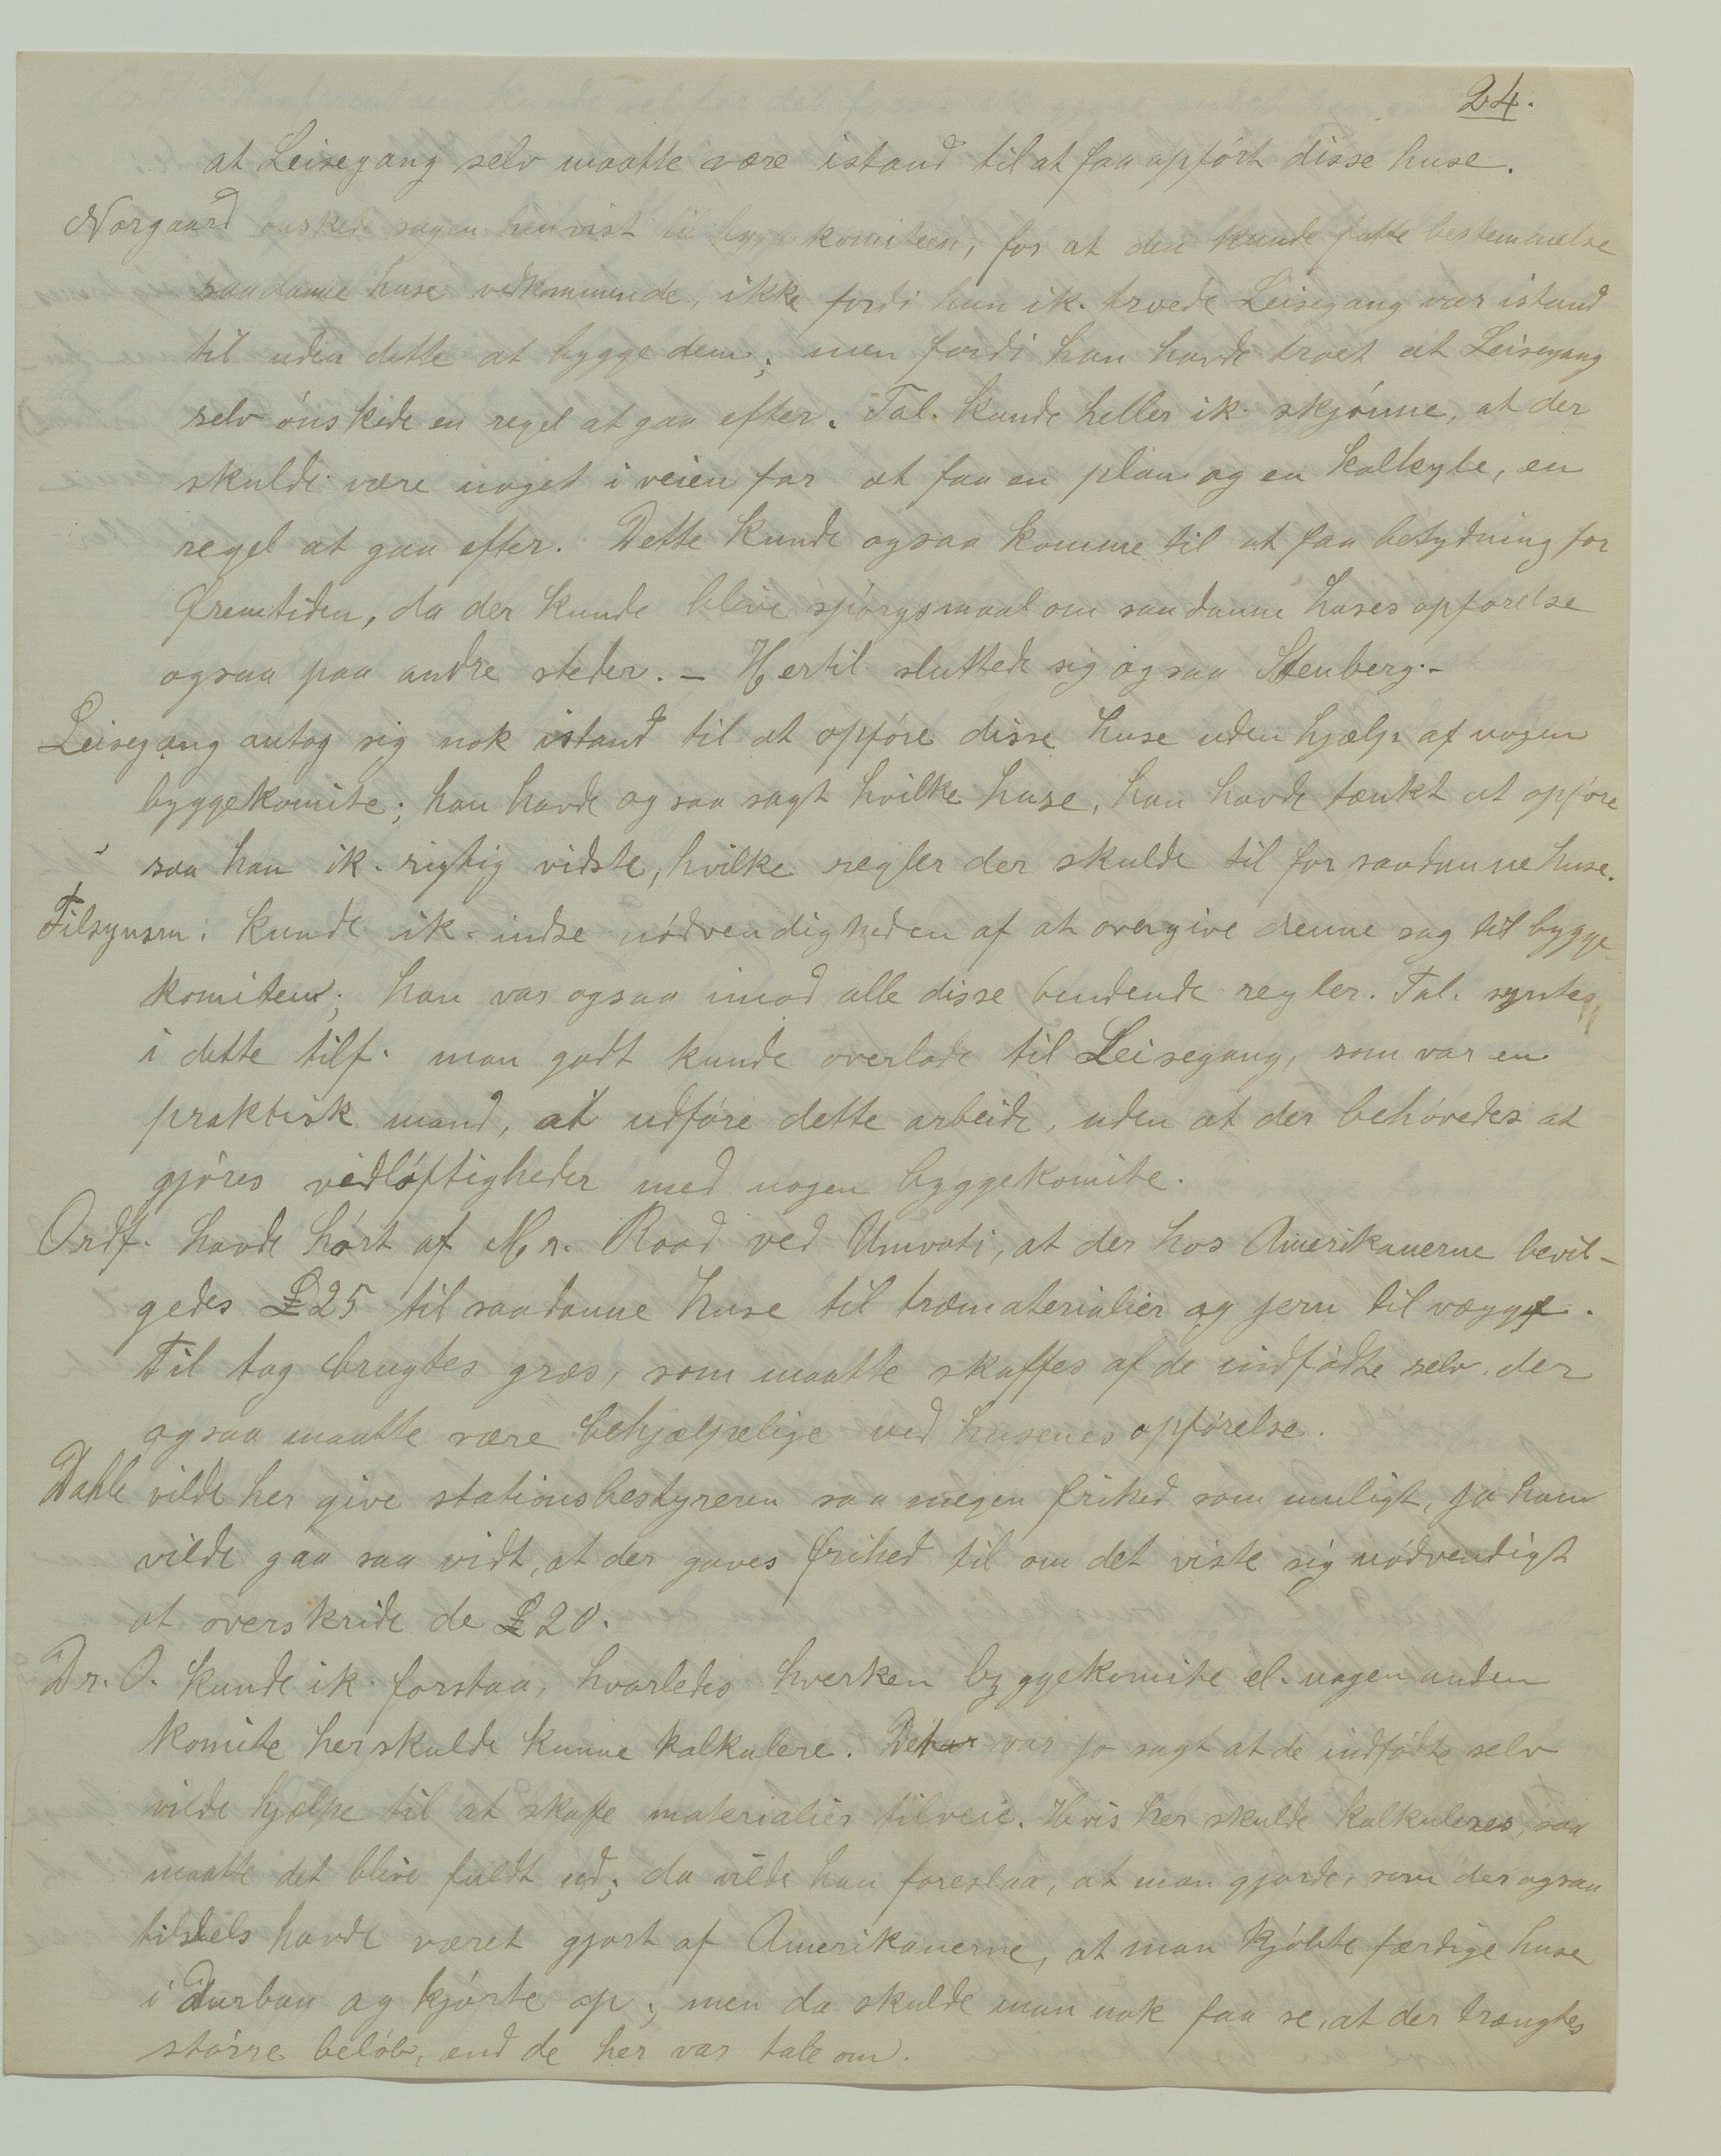 24.
at Leisegang selv maatte være istand til at faa opført disse huse.
Norgaard ønskede sagen henvist til byggekomiteen, for at den kunde fatte bestemmelse
saadanne huse vedkommende, ikke fordi han ik. troede Leisegang var istand
til uden dette at bygge dem; men fordi han havde troet at Leisegang
selv ønskede en regel at gaa efter. Tal. kunde heller ik. skjønne, at der
skulde være noget i veien for at faa en plan og en kalkyle, en
regel at gaa efter. Dette kunde ogsaa komme til at faa betydning for
fremtiden, da der kunde blive spørgsmaal om saadanne huses opførelse
ogsaa paa andre steder. – Hertil sluttede sig ogsaa Stenberg. –
Leisegang antog sig nok istand til at opføre disse huse uden hjælp af nogen
byggekomite; han havde ogsaa sagt hvilke huse, han havde tænkt at opføre
saa han ik. rigtig vidste, hvilke regler der skulde til for saadanne huse.
Tilsynsm. kunde ik. indse nødvendigheden af at overgive denne sag til bygge-
komiteen; han var ogsaa imod alle disse bindende regler. Tal. syntes,
i dette tilf. man godt kunde overlade til Leisegang, som var en
praktisk mand, at udføre dette arbeide, uden at der behøvedes at
gjøres vidløftigheder med nogen byggekomite.
Ordf. havde hørt af Mr. Rood ved Umvoti, at der hos Amerikanerne bevil-
gedes £25 til saadanne huse til træmaterialier og jern til vægge.
Til tag brugtes græs, som maatte skaffes af de indfødte selv, der
ogsaa maatte være behjælpelige ved husenes opførelse.
Dahle vilde her give stationsbestyreren saa megen frihed som muligt, ja han
vilde gaa saa vidt, at der gaves frihed til om det viste sig nødvendigt
at overskride de £20.
Dr. O. kunde ik. forstaa, hvorledes hverken byggekomite el. nogen anden
komite her skulde kunne kalkulere. Det var jo sagt at de indfødte selv
vilde hjælpe til at skaffe materialier tilveie. Hvis her skulde kalkuleres, saa
maatte det blive fuldt ud; da vilde han foreslaa, at man gjorde, som der ogsaa
tildels havde været gjort af Amerikanerne, at man kjøbte færdige huse
i Durban og kjørte op; men da skulde man nok faa se, at der trængtes
større beløb, end de her var tale om.